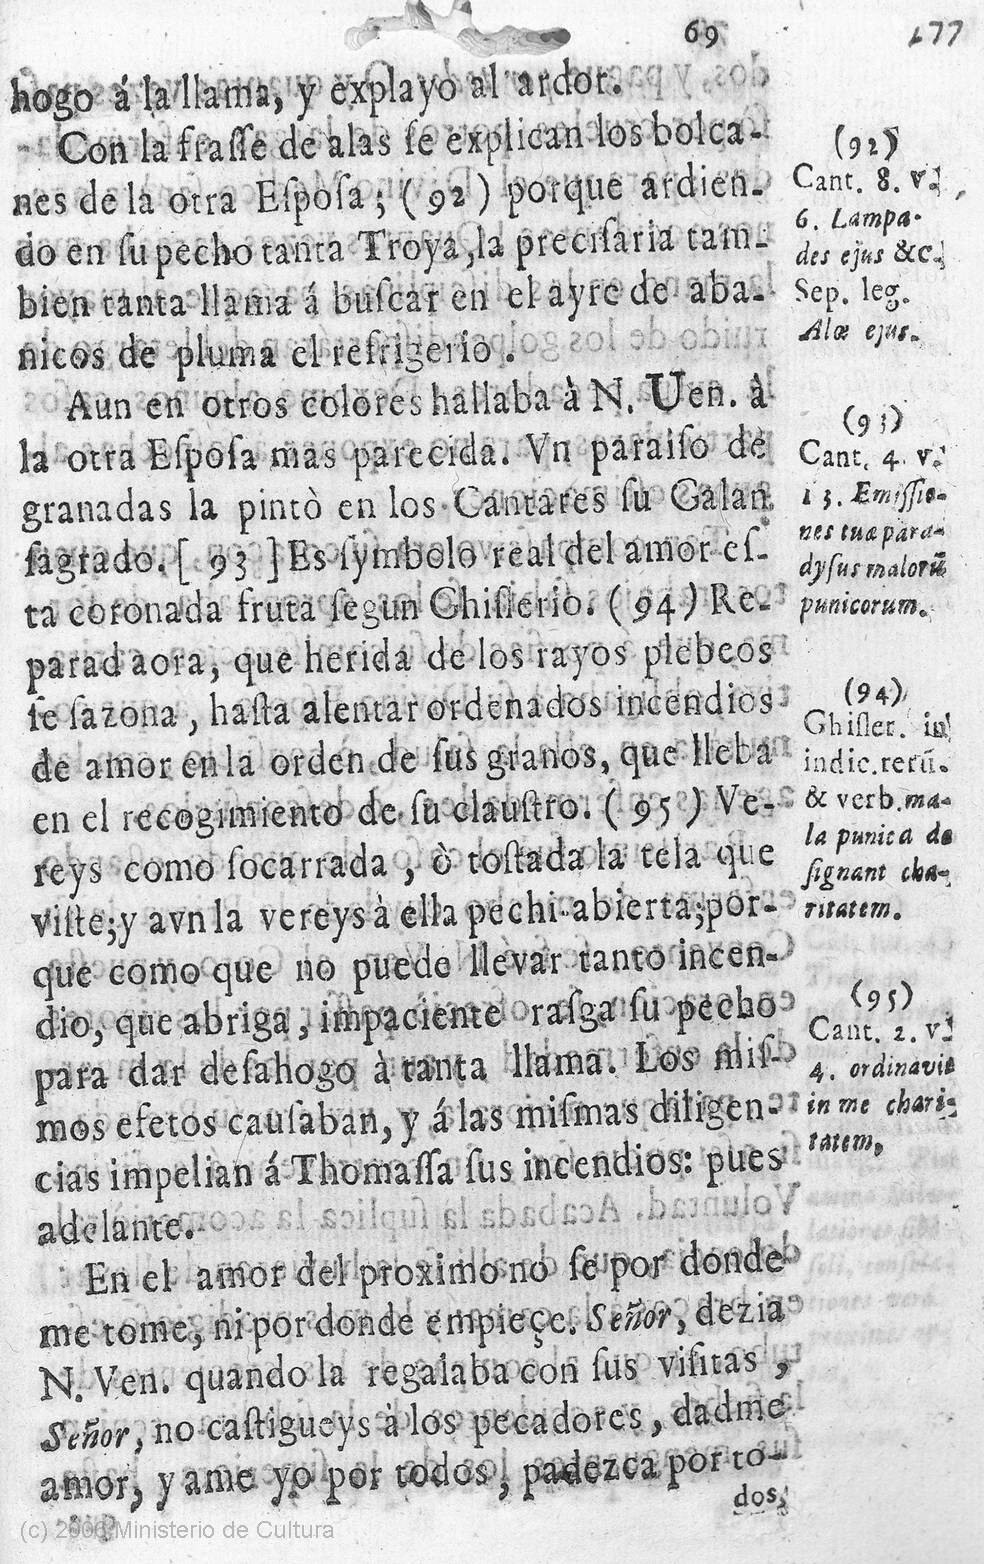 69
177
hogo á la llama, y explayo al ardor.
Con la frasſe de alas ſe explican los bolca-
nes de la otra Eſpoſa; (92) porque ardien-
do en ſu pecho tanta Troya, la preciſaria tam-
bien tanta llama á buſcar en el ayre de aba-
nicos de pluma el refrigerio.
Aun en otros colores hallaba à N. Uen. à
la otra Eſpoſa mas parecida. Vn paraiſo de
granadas la pintò en los Cantares ſu Galan
ſagrado. [ 93 ] Es ſymbolo real del amor eſ-
ta coronada fruta ſegun Ghiſlerio. (94) Re-
parad aora, que herida de los rayos plebeos
ſe ſazona, haſta alentar ordenados incendios
de amor en la orden de ſus granos, que lleba
en el recogimiento de ſu clauſtro. (95) Ve-
reys como ſocarrada, ò toſtada la tela que
viſte; y avn la vereys à ella pechi-abierta; por-
que como que no puede llevar tanto incen-
dio, que abriga, impaciente raſga ſu pecho
para dar deſahogo à tanta llama. Los miſ-
mos efetos cauſaban, y á las miſmas diligen-
cias impelian á Thomaſſa ſus incendios: pues
adelante.
En el amor del proximo no ſe por donde
me tome, ni por donde empieçe. Señor, dezia
N. Ven. quando la regalaba con ſus viſitas,
Señor, no caſtigueys à los pecadores, dadme
amor, y ame yo por todos, padezca por to-
dos,
(92)
Cant. 8. v.
6. Lampa-
des ejus &c.
Sep. leg.
Alæ ejus.
(93)
Cant. 4. v.
13. Emiſſio-
nes tuæ para-
dyſus malorũ
punicorum.
(94)
Ghiſler. in
indic. rerũ.
& verb. ma-
la punica de
ſignant cha-
ritatem.
(95)
Cant. 2. v.
4. ordinavit
in me chari-
tatem.
(c) 2006 Ministerio de Cultura